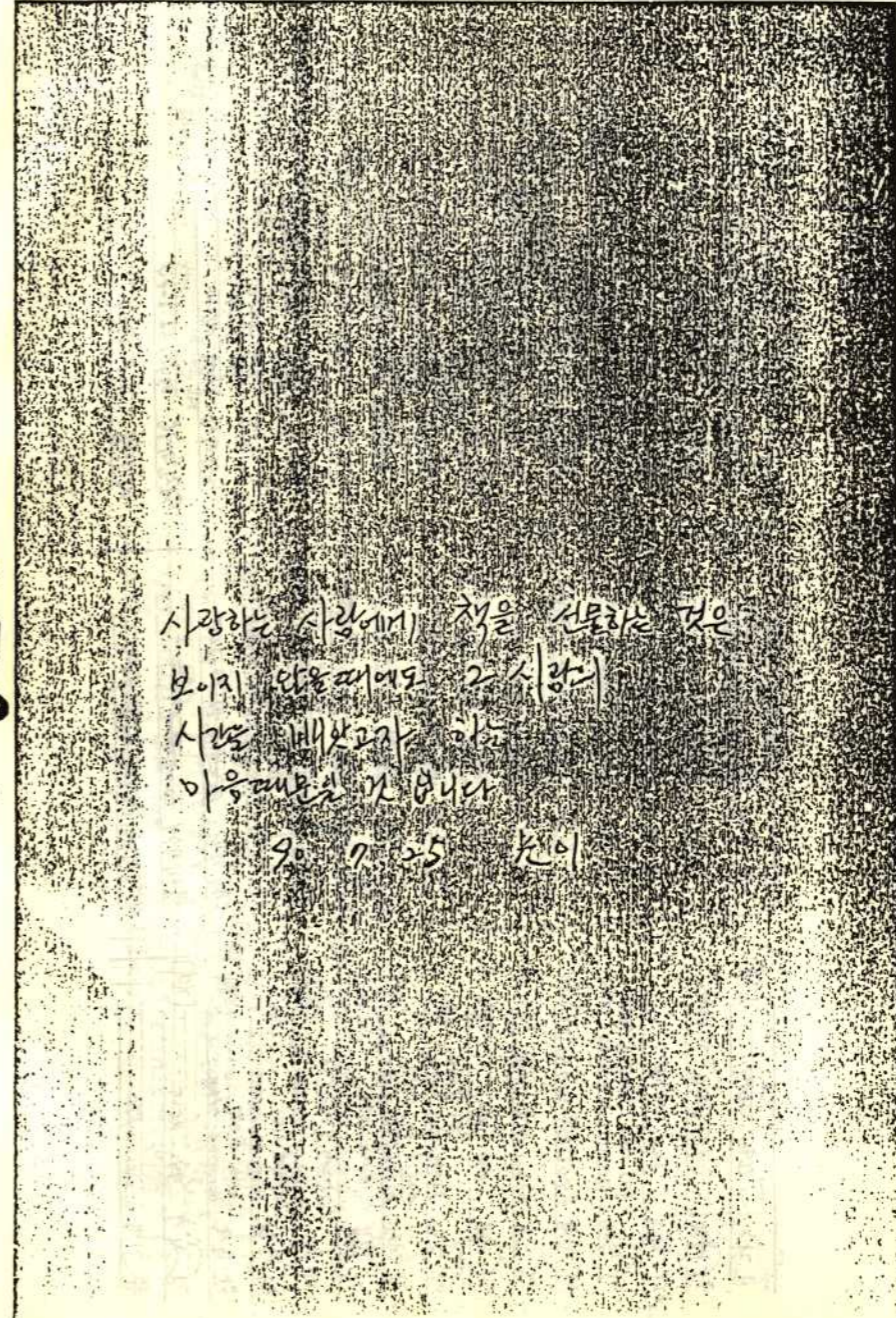 사랑하는 사람에게 책을 선물하는 것은
보이지 않을때에도 그 사람의
시간을 빼앗고자 하는
마음때문일 것 입니다
90 7 25